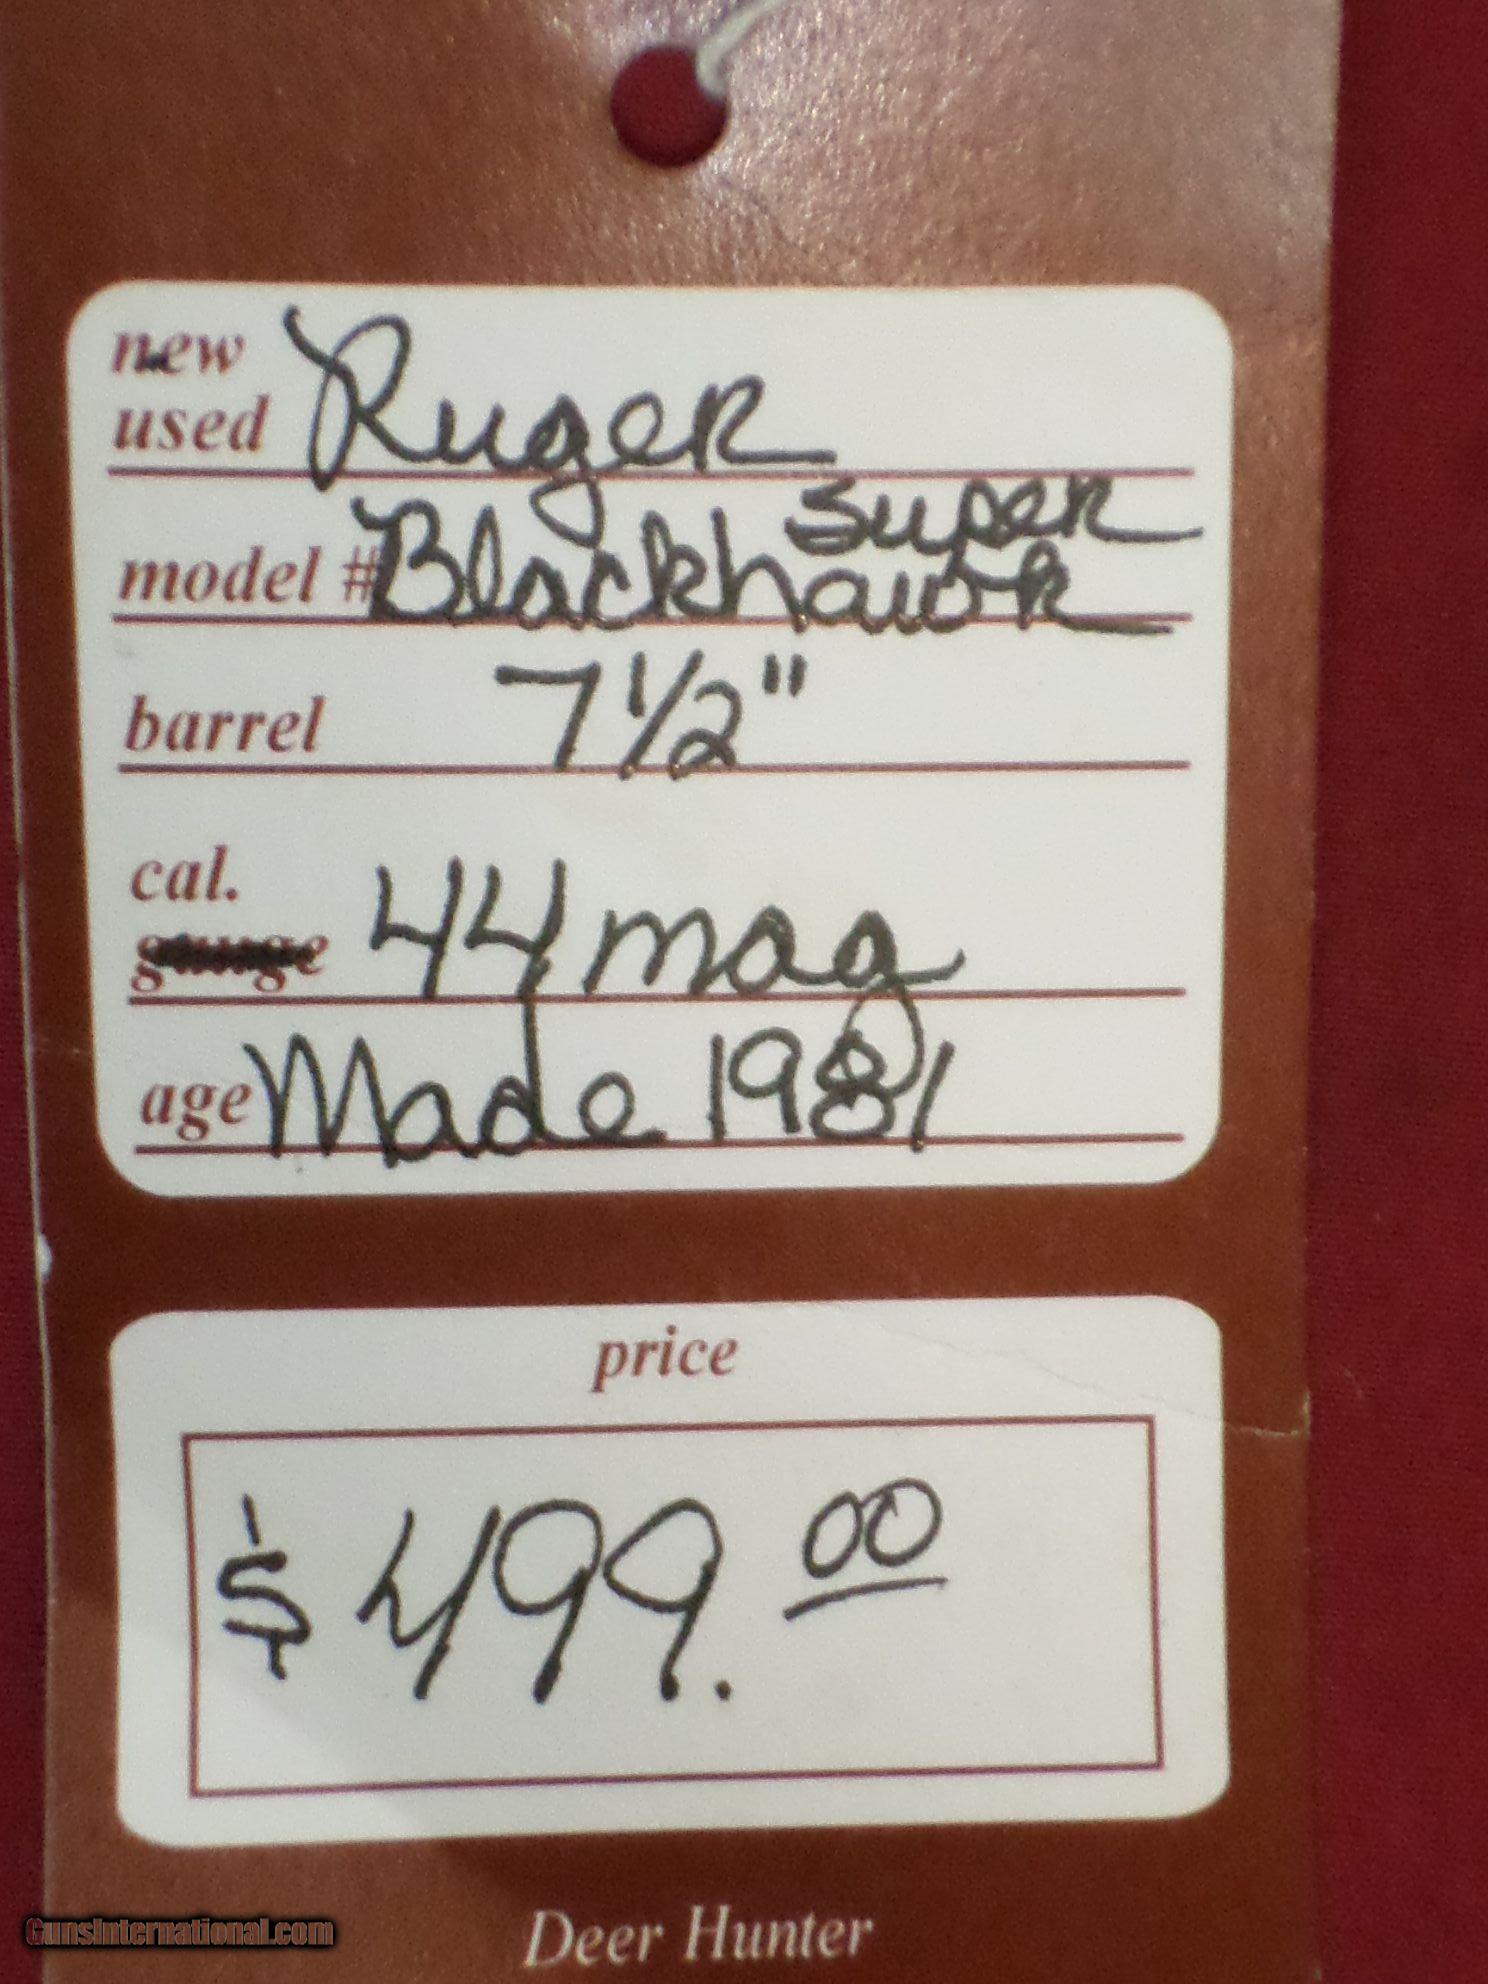 new
used Ruger
Super
model # Blackhawk
barrel 7 1/2"
cal.
gauge 44 mag
age Made 1981
price
$ 499.00
Deer Hunter
GunsInternational.com